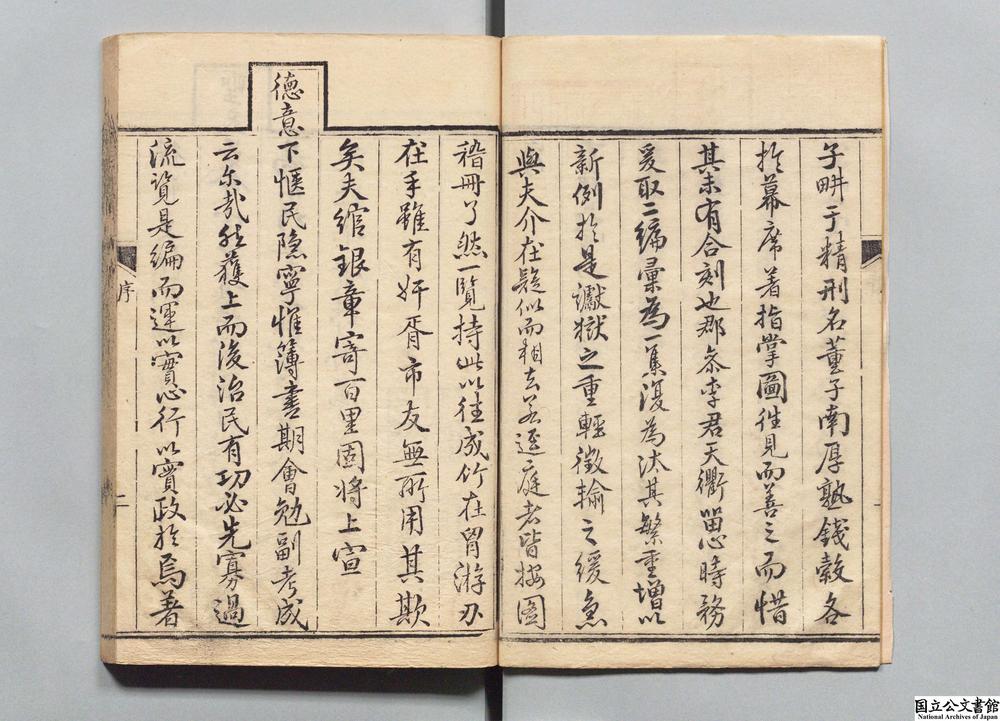 子畊于精刑名董子南厚熟錢穀各
挾幕席著指掌圖徃見而善之而惜
其未有合刻也郡叅李君天衢留心時務
爰取二編彙為一集復為汰其繁重增以
新例於是讞獄之重輕徵輸之緩急
與夫介在疑似而相去若逕庭者皆按圖
稽冊了然一覽持此以往成竹在胷游刃
在手雖有奸胥市友無所用其欺
矣夫綰銀章寄百里固將上宣
德意下愜民隱寧惟簿書期會勉副考成
云尓哉然獲上而後治民有功必先寡過
流覽是編而運以實心行以實政於焉著
序
二
国立公文書館
National Archives of Japan